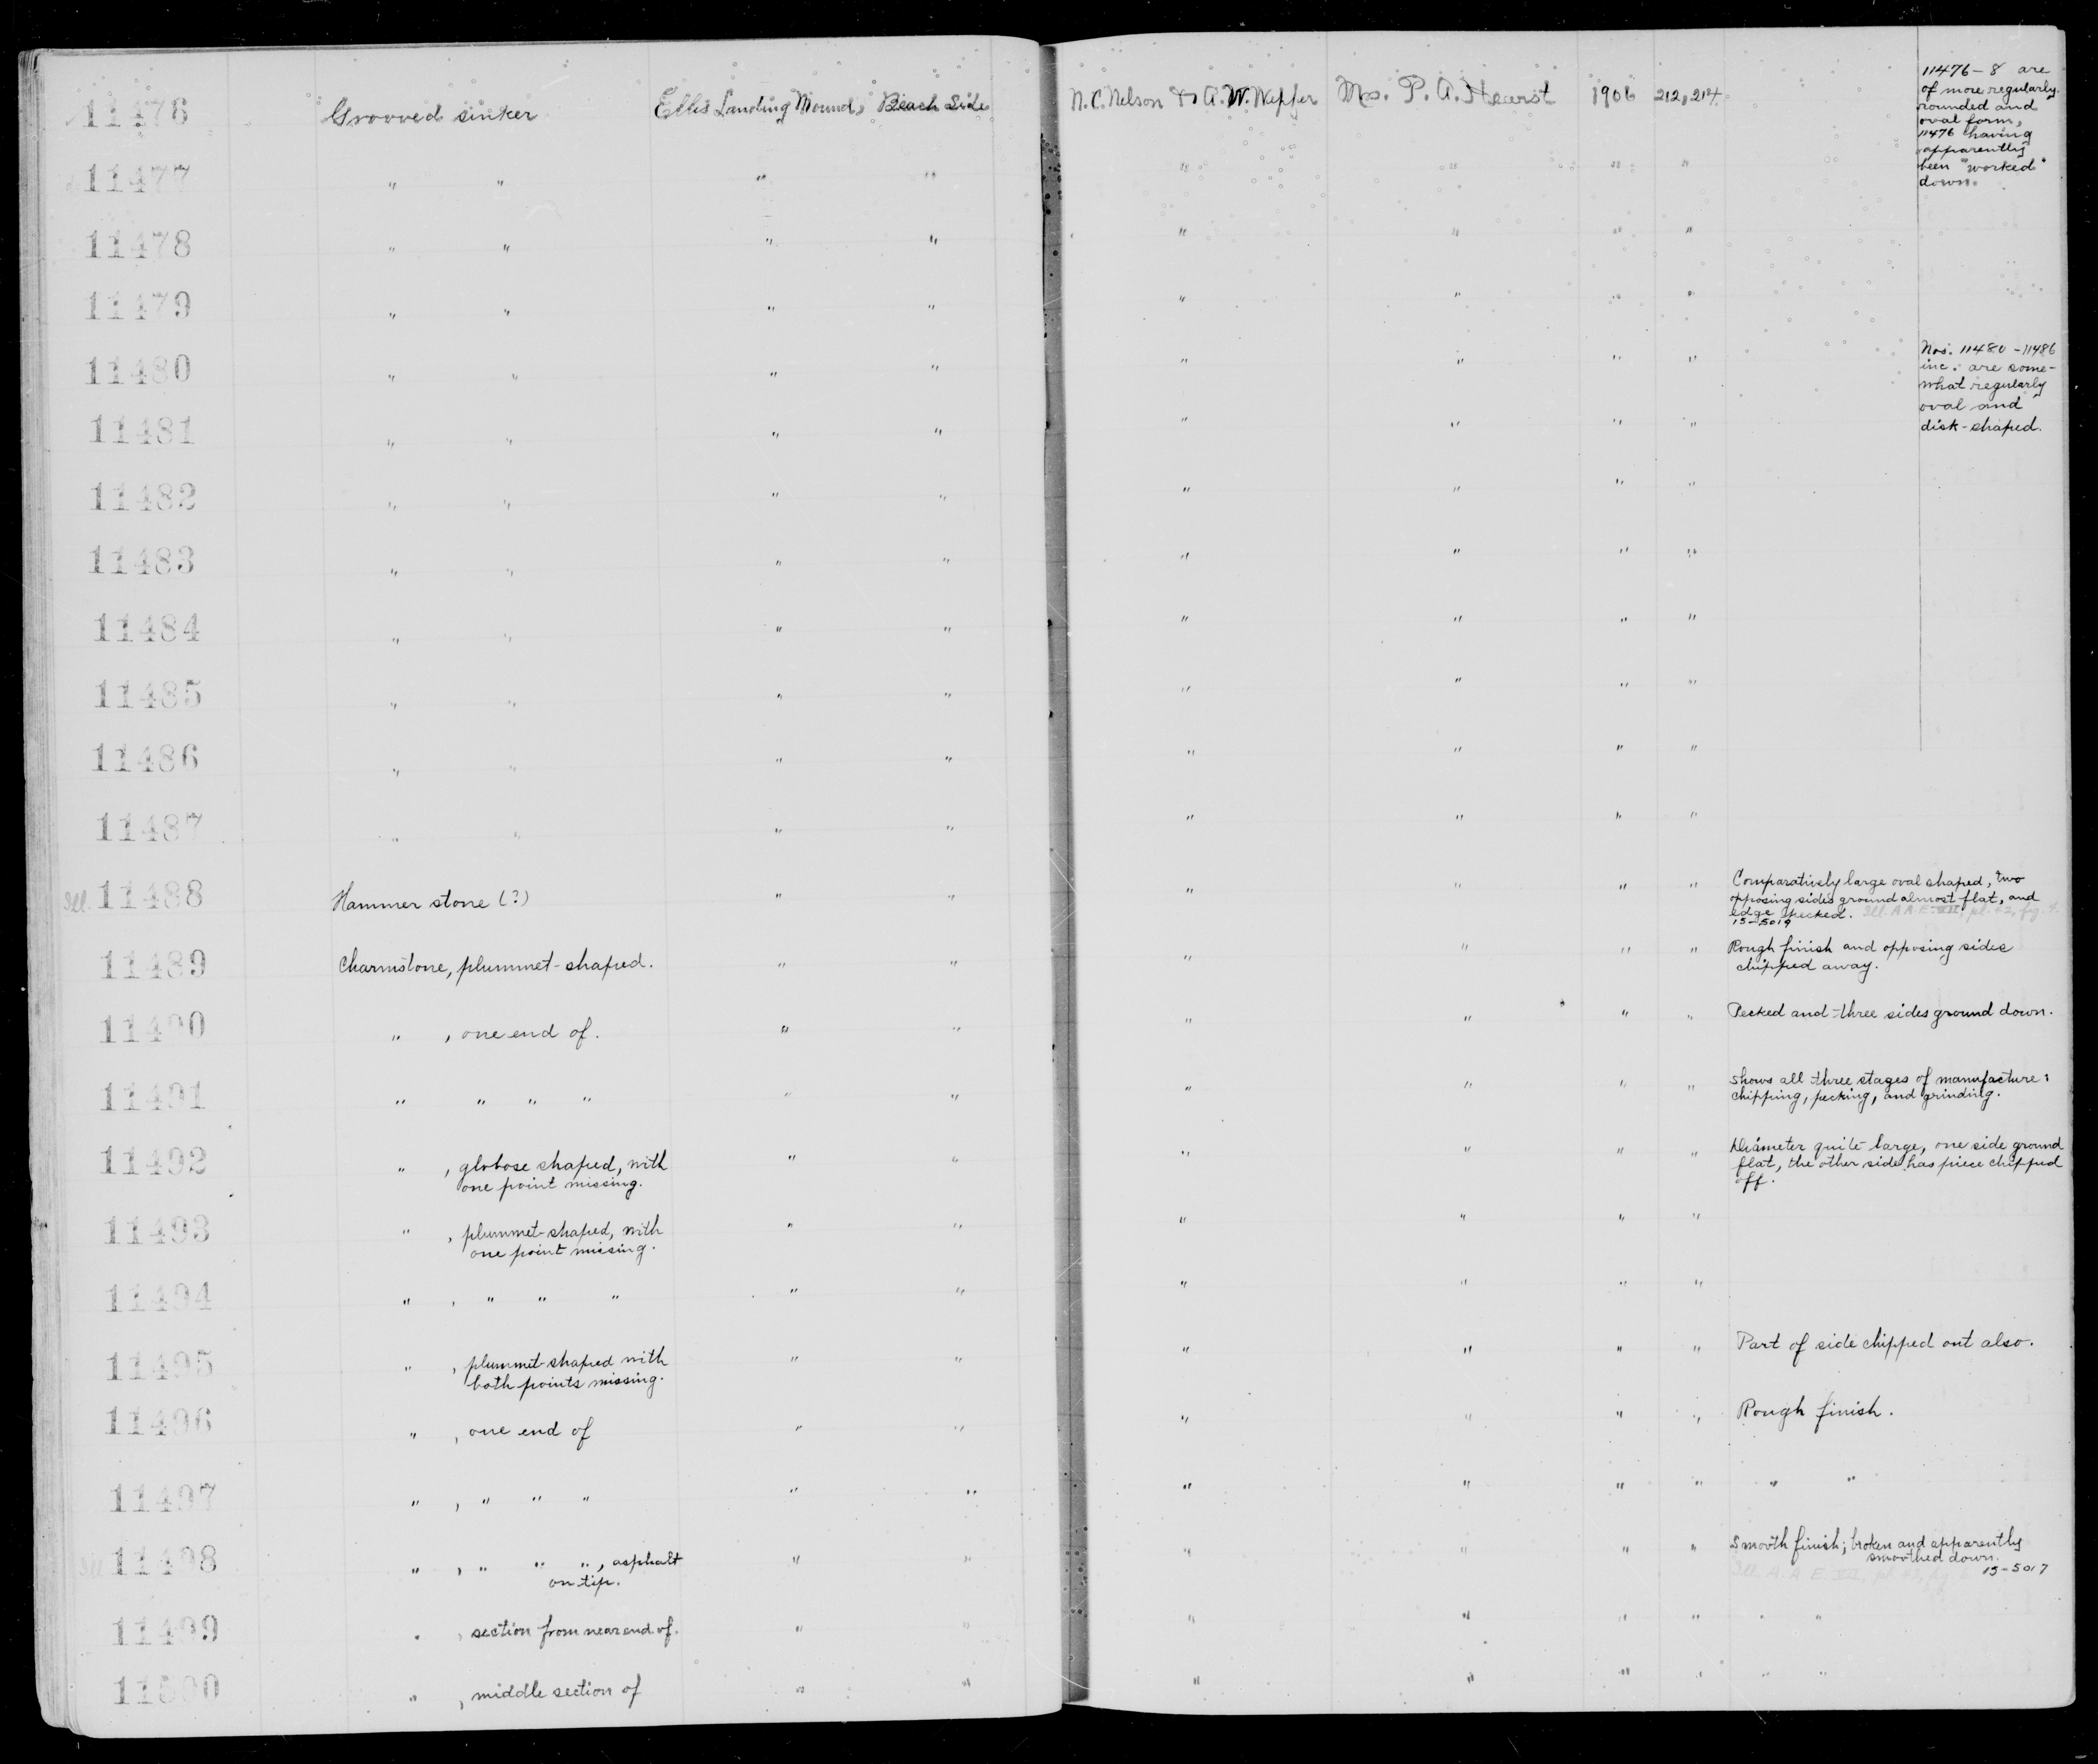 11476 Grooved sinker Ellis Landing Mound, Beach Side N. C. Nelson & A. W. Wepfer Mrs. P. A. Hearst 1906 212, 214.
11476-8 are
of more regularly
rounded and
oval form,
11476 having
apparently
been "worked"
down.
11477 " " " " " " " "
11478 " " " " " " " "
11479 " " " " " " " "
11480 " " " " " " " "
Nos. 11480-11486
inc. are some-
what regularly
oval and
disk-shaped.
11481 " " " " " " " "
11482 " " " " " " " "
11483 " " " " " " " "
11484 " " " " " " " "
11485 " " " " " " " "
11486 " " " " " " " "
11487 " " " " " " " "
Ill. 11488 Hammer stone (?) " " " " " "
Comparatively large oval shaped, two
opposing sides ground almost flat, and
edge pecked. Ill. A.A.E. VII, pl. 42, fig. 4.
15-5019
11489 Charmstone, plummet-shaped. " " " " " "
Rough finish and opposing sides
chipped away.
11490 " , one end of. " " " " " " Pecked and three sides ground down.
11491 " " " " " " " " " "
Shows all three stages of manufacture:
chipping, pecking, and grinding.
11492 " , globose shaped, with
one point missing. " " " " " "
Diameter quite large, one side ground
flat, the other side has piece chipped
off.
11493 " , plummet-shaped, with
one point missing. " " " " " "
11494 " , " " " " " " " " "
11495 " , plummet-shaped with
both points missing. " " " " " " Part of side chipped out also.
11496 " , one end of " " " " " " Rough finish.
11497 " , " " " " " " " " " " "
Ill 11498 " , " " " , asphalt
on tip. " " " " " "
Smooth finish; broken and apparently
smoothed down.
Ill. A. A. E. VII, pl. 15-5017
11499 " , section from near end of. " " " " " " " "
11500 " , middle section of " " " " " " " "